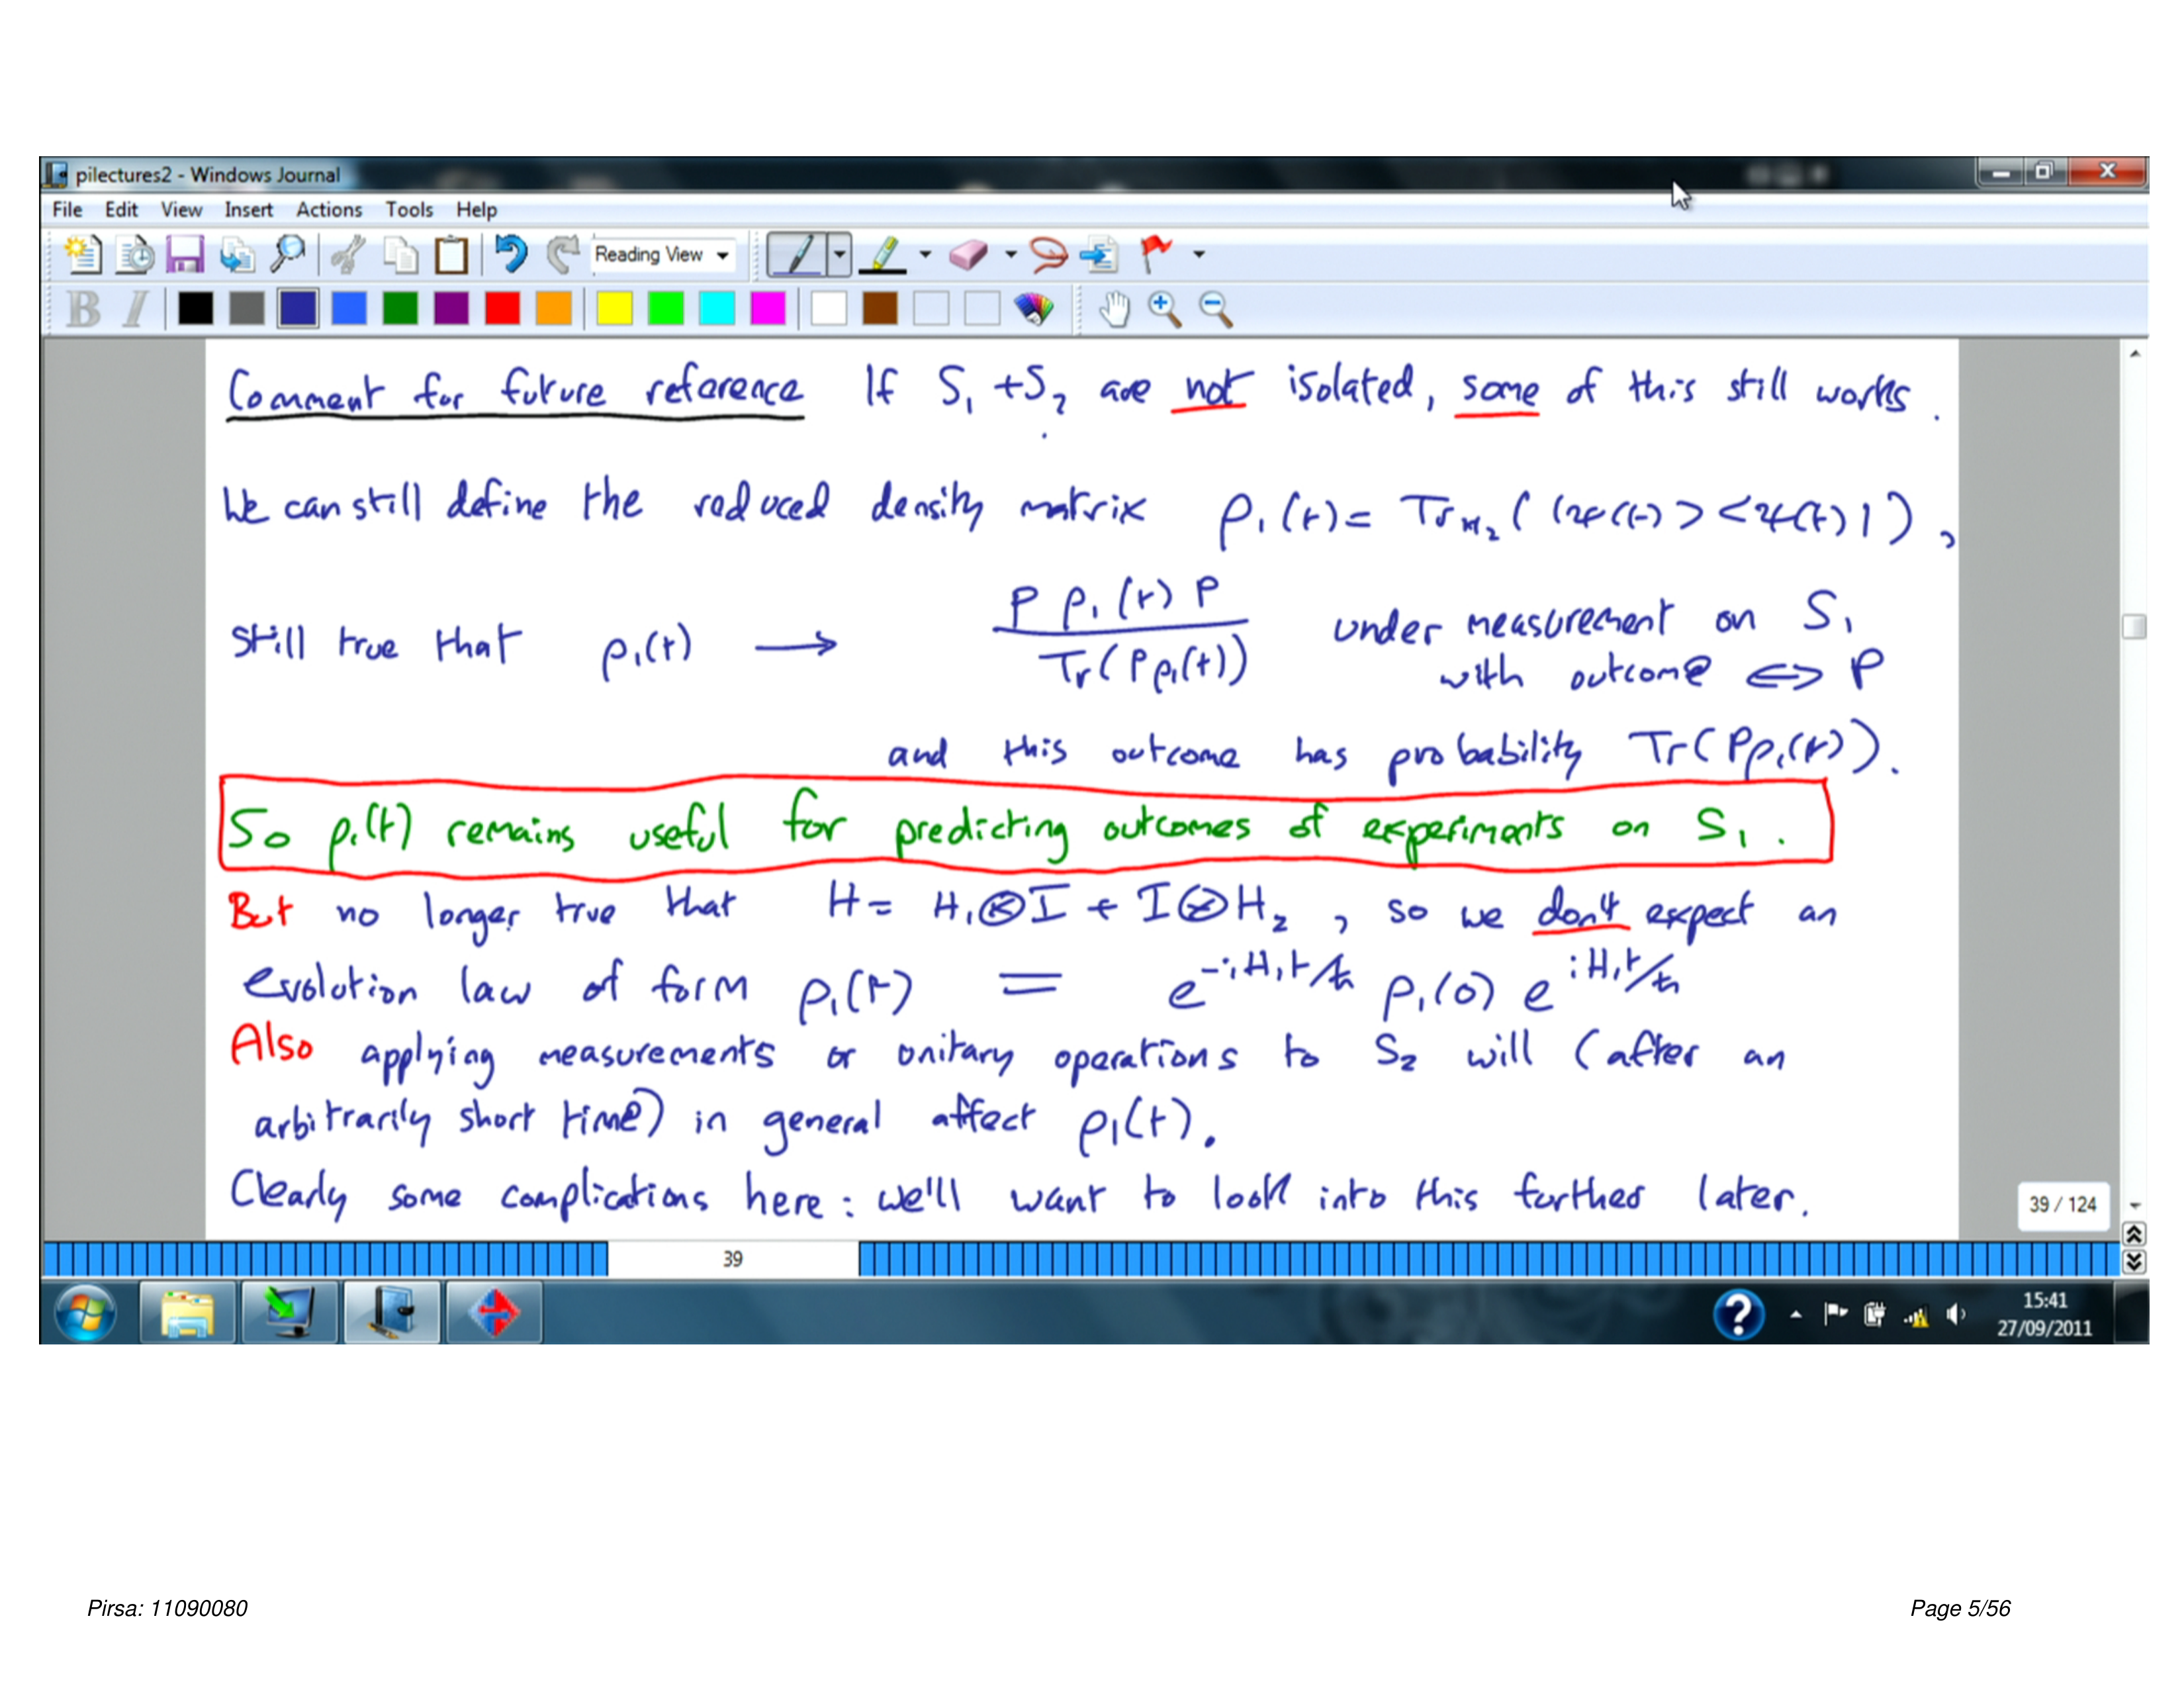 pilectures2 - Windows Journal
File Edit View Insert Actions Tools Help
Reading View
B I
Comment for future reference If S₁ + S₂ are not isolated, some of this still works.
We can still define the reduced density matrix ρ₁(t) = Tr_H₂ ( |ψ(t)> <ψ(t)| ),
Still true that ρ₁(t) → P ρ₁(t) P / Tr(P ρ₁(t)) under measurement on S₁
with outcome ⇔ P
and this outcome has probability Tr(Pρ₁(t)).
So ρ₁(t) remains useful for predicting outcomes of experiments on S₁.
But no longer true that H = H₁⊗I + I⊗H₂, so we don't expect an
evolution law of form ρ₁(t) = e^{-iH₁t/ħ} ρ₁(0) e^{iH₁t/ħ}
Also applying measurements or unitary operations to S₂ will (after an
arbitrarily short time) in general affect ρ₁(t).
Clearly some complications here: we'll want to look into this further later.
39 / 124
39
15:41
27/09/2011
Pirsa: 11090080
Page 5/56